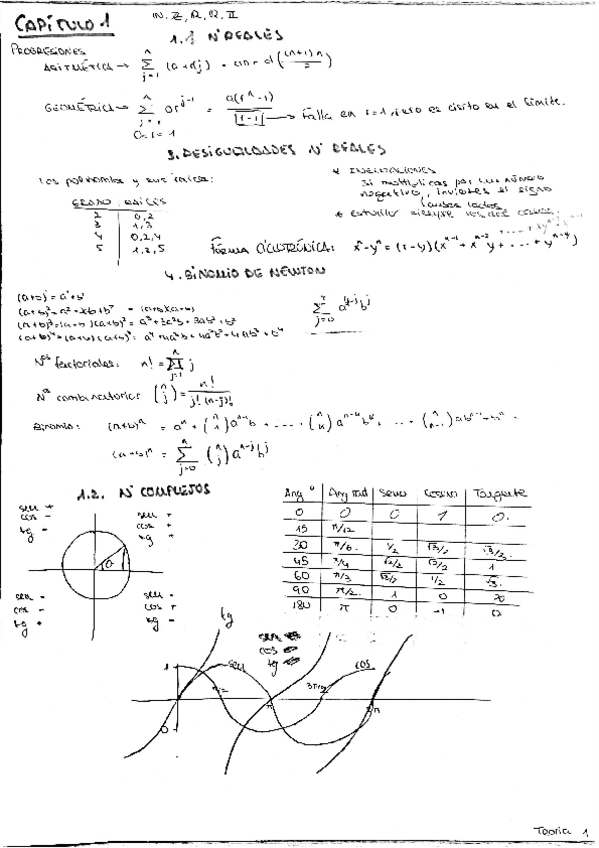 CAPÍTULO 1
IN, Z, Q, R, II
1.1 Nº REALES
PROGRESIONES
ARITMÉTICA → n Σ j=1 (a+dj) = an + d((n+1)n/2)
GEOMÉTRICA → n Σ j=1 ar^j-1 = a(r^n-1)/r-1 → Falla en r=1, esto es cierto en el límite.
3. DESIGUALDADES Nº REALES
Los polinomios y sus raíces:
* INECUACIONES
Si multiplicas por un número
negativo, inviertes el signo
GRADO RAICES
2 0,2
3 1,3
4 0,2,4
5 1,3,5
* estudiar siempre los dos
FÓRMULA CICLOTRÓNICA: x^n-y^n = (x-y)(x^n-1 + x^n-2 y + ... + y^n-1)
4. BINOMIO DE NEWTON
(a+b)¹ = a¹+b¹
(a+b)² = a²+2ab+b² = (a+b)(a+b)
(a+b)³ = (a+b)(a+b)² = a³+3a²b+3ab²+b³
(a+b)⁴ = (a+b)(a+b)³ = a⁴+4a³b+6a²b²+4ab³+b⁴
4 Σ j=0 a^4-j b^j
Nos factoriales: n! = n Π j=1 j
Nos combinatorios (n j) = n!/j!(n-j)!
Binomio: (a+b)^n = a^n + (n 1)a^n-1 b + .... (n k)a^n-k b^k + ... (n n-1)ab^n-1 + b^n
(a+b)^n = n Σ j=0 (n j)a^n-j b^j
1.2. Nº COMPLEJOS
sen +
cos -
tg -
sen +
cos +
tg +
α
sen -
cos -
tg +
sen -
cos +
tg -
Ang º Ang rad Seno Coseno Tangente
0 0 0 1 0
15 π/12
30 π/6 1/2 √3/2 √3/3
45 π/4 √2/2 √2/2 1
60 π/3 √3/2 1/2 √3
90 π/2 1 0 ∞
180 π 0 -1 0
tg
sen
cos
tg
1 sen cos
π/2 π 3π/2 2π
0
Teoría 1